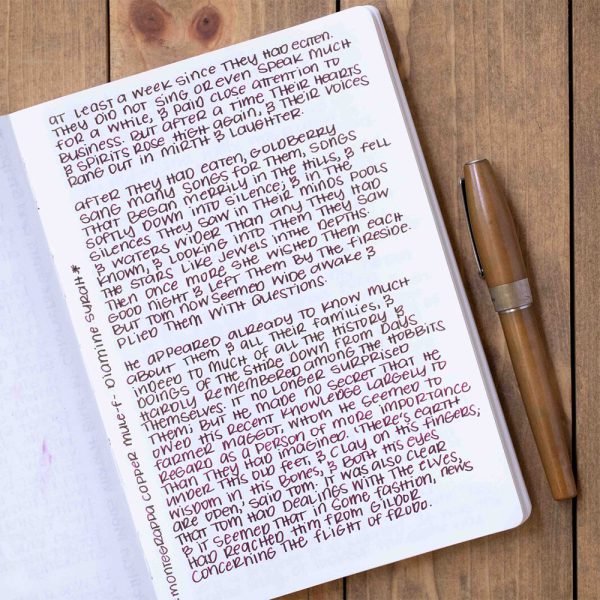 AT LEAST A WEEK SINCE THEY HAD EATEN.
THEY DID NOT SING OR EVEN SPEAK MUCH
FOR A WHILE, & PAID CLOSE ATTENTION TO
BUSINESS. BUT AFTER A TIME THEIR HEARTS
& SPIRITS ROSE HIGH AGAIN, & THEIR VOICES
RANG OUT IN MIRTH & LAUGHTER.
AFTER THEY HAD EATEN, GOLDBERRY
SANG MANY SONGS FOR THEM, SONGS
THAT BEGAN MERRILY IN THE HILLS, & FELL
SOFTLY DOWN INTO SILENCE; & IN THE
SILENCES THEY SAW IN THEIR MINDS POOLS
& WATERS WIDER THAN ANY THEY HAD
KNOWN, & LOOKING INTO THEM THEY SAW
THE STARS LIKE JEWELS IN THE DEPTHS.
THEN ONCE MORE SHE WISHED THEM EACH
GOOD NIGHT & LEFT THEM BY THE FIRESIDE.
BUT TOM NOW SEEMED WIDE AWAKE &
PLIED THEM WITH QUESTIONS.
HE APPEARED ALREADY TO KNOW MUCH
ABOUT THEM & ALL THEIR FAMILIES, &
INDEED TO MUCH OF ALL THE HISTORY &
DOINGS OF THE SHIRE DOWN FROM DAYS
HARDLY REMEMBERED AMONG THE HOBBITS
THEMSELVES. IT NO LONGER SURPRISED
THEM; BUT HE MADE NO SECRET THAT HE
OWED HIS RECENT KNOWLEDGE LARGELY TO
FARMER MAGGOT, WHOM HE SEEMED TO
REGARD AS A PERSON OF MORE IMPORTANCE
THAN THEY HAD IMAGINED. 'THERE'S EARTH
UNDER THIS OLD FEET, & CLAY ON HIS FINGERS;
WISDOM IN HIS BONES, & BOTH HIS EYES
ARE OPEN,' SAID TOM. IT WAS ALSO CLEAR
THAT TOM HAD DEALINGS WITH THE ELVES,
& IT SEEMED THAT IN SOME FASHION, NEWS
HAD REACHED HIM FROM GILDOR
CONCERNING THE FLIGHT OF FRODO.
MONTEGRAPPA COPPER MULE-F- OLOMINE SYRAH*